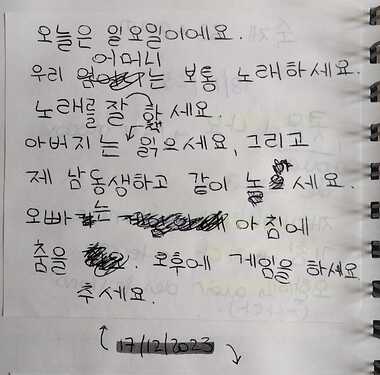 오늘은 일요일이에요.
어머니
우리 는 보통 노래하세요.
노래를 잘 하세요.
아버지는 읽으세요, 그리고
제 남동생하고 같이 노세요.
오빠는 아침에
춤을 . 오후에 게임을 하세요
추세요.
17/12/2023